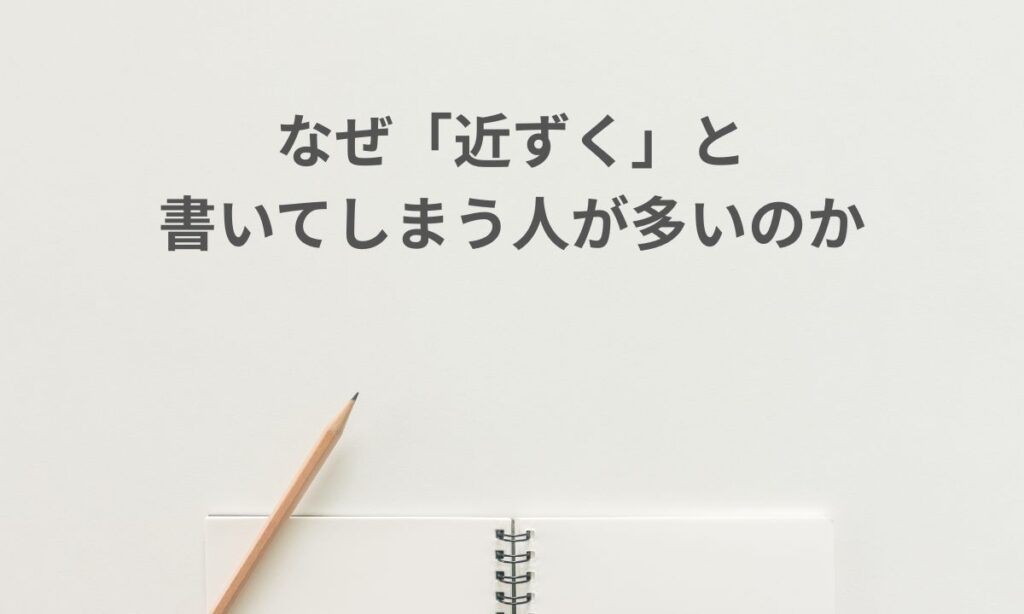 なぜ「近ずく」と
書いてしまう人が多いのか